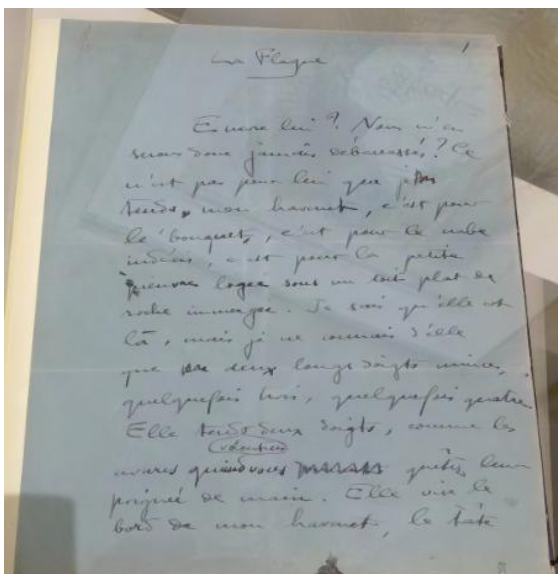 La Flaque
1
Encore lui ? Nous n'en
serons donc jamais débarassés ? Ce
n'est pas pour lui que je
tends mon havenet, c'est pour
le bouquet, c'est pour le crabe
indécis, c'est pour la petite
pieuvre logée sous un toit plat de
roche immergée. Je sais qu'elle est
là, mais je ne connais d'elle
que deux longs doigts minces,
quelquefois trois, quelquefois quatre.
Elle tend deux doigts, comme les
avares quand vous leur
poignée de main. Elle vise le
bord de mon havenet, le tâte